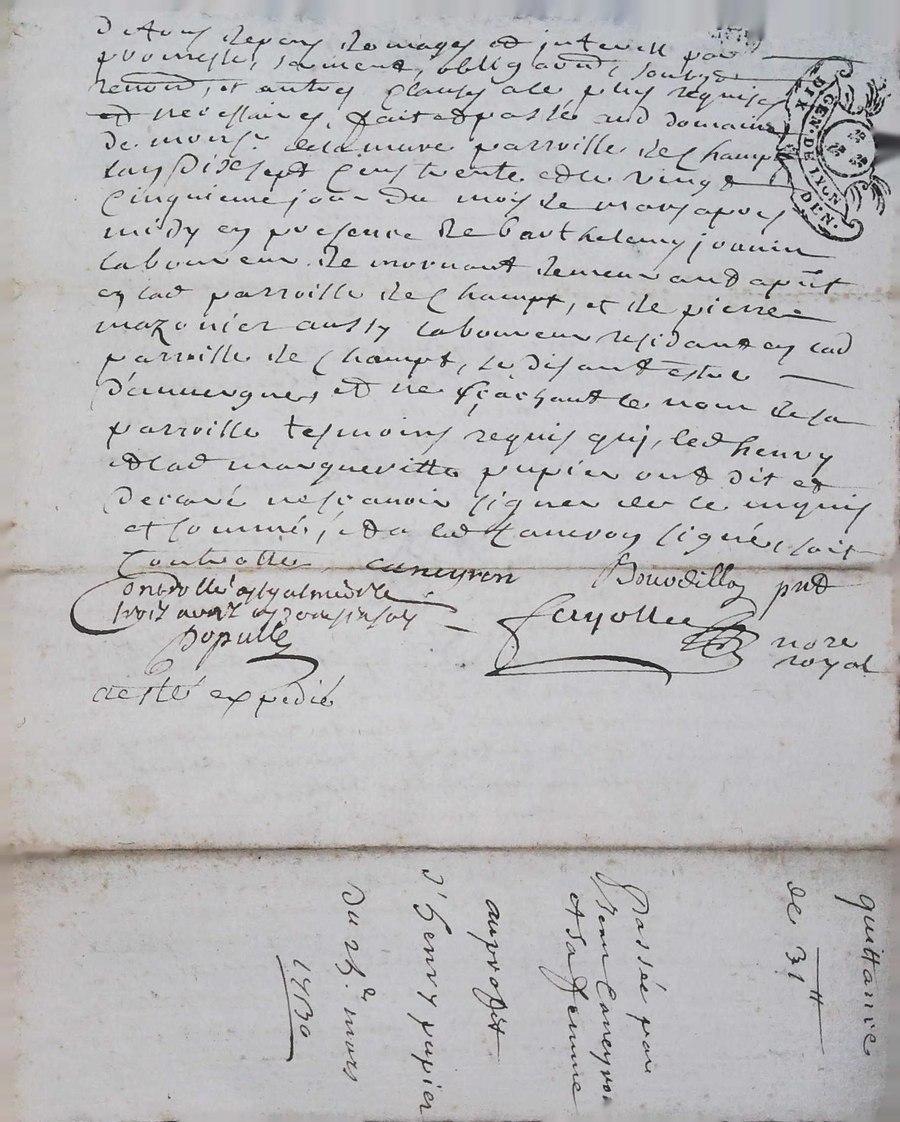 de tous depens domages et interest par
promesse, serment, obligaons, soubz
renond, et autres clauses a ce plus requises
et necessaires, fait et passé aud domaine
de monsr. delamure parroisse de Champt
lan dix sept Cens trente et le vingt
Cinquieme jour du mois de mars apres
midy en presence de barthelemy jouanin
laboureur de mornant demeurand apnt
en lad parroisse de Champt, et de pierre
mazonier aussy laboureur residant en lad
parroisse de Champt, se disant estre
d'auvergne, et ne sçachant le nom de sa
parroisse tesmoins requis qui, led henry
et lad margueritte pupier ont dit et
declaré ne scavoir signer de ce enquis
et sommés, et a led Caneyron signé, soit
Controllé, caneyron Bourdillon pnt
Controllé
trois
Populle
Fayolle nore
royal
a esté expedié
quittance
de 31 tt
Passée par
Caneyron
et sa femme
au profit
d'henry pupier
du 25e. mars
1730
DIX DEN.
GEN. DE LYON